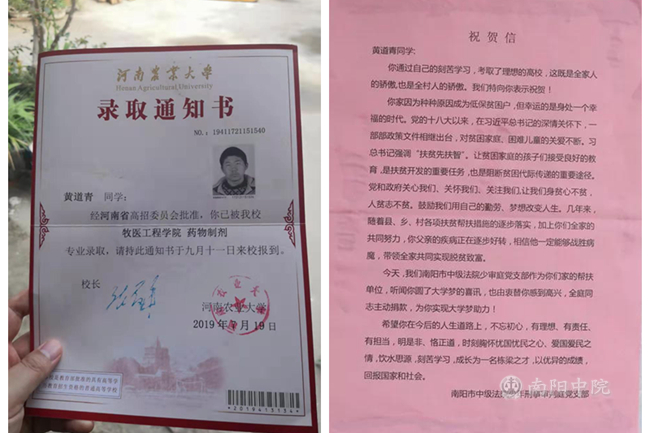 河南农业大学
Henan Agricultural University
录取通知书
NO.: 19411721151540
黄道青 同学:
经河南省高招委员会批准,你已被我校
牧医工程学院 药物制剂
专业录取,请持此通知书于九月十一日来校报到。
校长
河南农业大学
2019年7月19日
祝贺信
黄道青同学:
你通过自己的刻苦学习,考取了理想的高校,这既是全家人
的骄傲,也是全村人的骄傲。我们特向你表示祝贺!
你家因为种种原因成为低保贫困户,但幸运的是身处一个幸
福的时代。党的十八大以来,在习近平总书记的深情关怀下,一
部部政策文件相继出台,对贫困家庭、困难儿童的关爱不断。习
总书记强调“扶贫先扶智”。让贫困家庭的孩子们接受良好的教育
,是扶贫开发的重要任务,也是阻断贫困代际传递的重要途径。
党和政府关心我们、关怀我们、关注我们,让我们身贫心不贫,
人贫志不贫。鼓励我们用自己的勤劳、梦想改变人生。几年来,
随着县、乡、村各项扶贫帮扶措施的逐步落实,加上你们全家的
共同努力,你父亲的疾病正在逐步好转,相信他一定能够战胜病
魔,带领全家共同实现脱贫致富。
今天,我们南阳市中级法院少审庭党支部作为你们家的帮扶
单位,听闻你圆了大学梦的喜讯,也由衷替你感到高兴,全庭同
志主动捐款,为你实现大学梦助力!
希望你在今后的人生道路上,不忘初心,有理想、有责任、
有担当,明是非、恪正道,时刻胸怀忧国忧民之心、爱国爱民之
情,饮水思源,刻苦学习,成为一名栋梁之才,以优异的成绩,
回报国家和社会。
南阳中院
南阳市中级法院刑事审判庭党支部